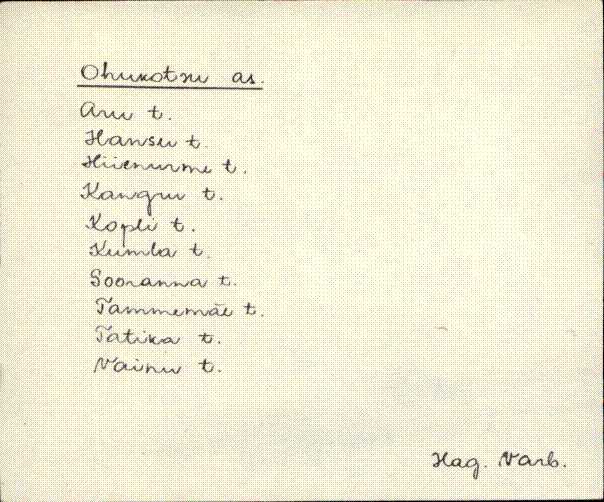 Ohukotsu as.
Aru t.
Hansu t.
Hiienurme t.
Kangru t.
Kopli t.
Kumla t.
Sooranna t.
Tammemäe t.
Tatika t.
Vainu t.
Hag. Varb.